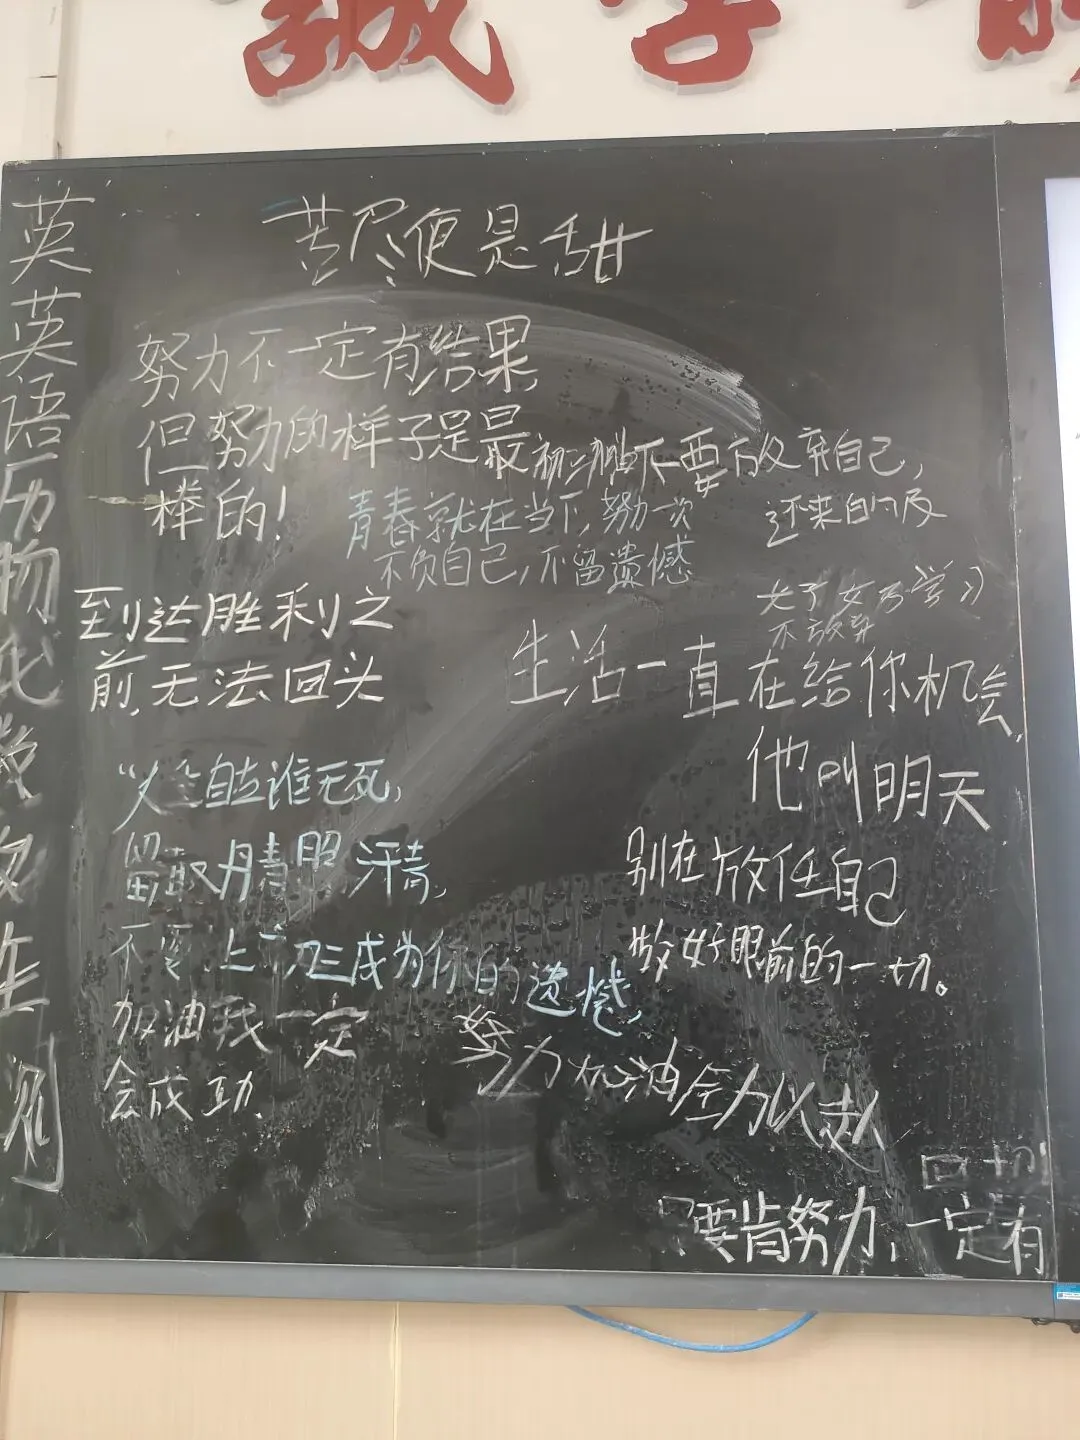 英
英
语
历
物
代
数
政
生
测
苦尽便是甜
努力不一定有结果,
但努力的样子是最
棒的!
初三加油不要放弃自己,
还来的及
青春就在当下,努力一次
不负自己,不留遗憾
到达胜利之
前,无法回头
好好学习
不放弃
生活一直在给你机会,
他叫明天
“人生自古谁无死,
留取丹青照汗青,
不要上初三成为你的遗憾,
加油我一定
会成功
别在放任自己
做好眼前的一切。
努力加油全力以赴
只要肯努力,一定有
回报